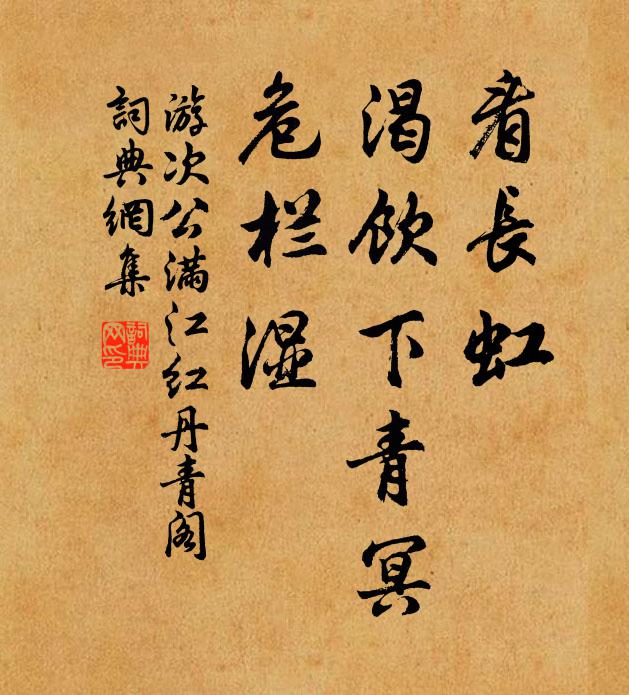 看長虹
渴飲下青冥
危栏湿
游次公满江红丹青阁
詞典網集
詞典
网印